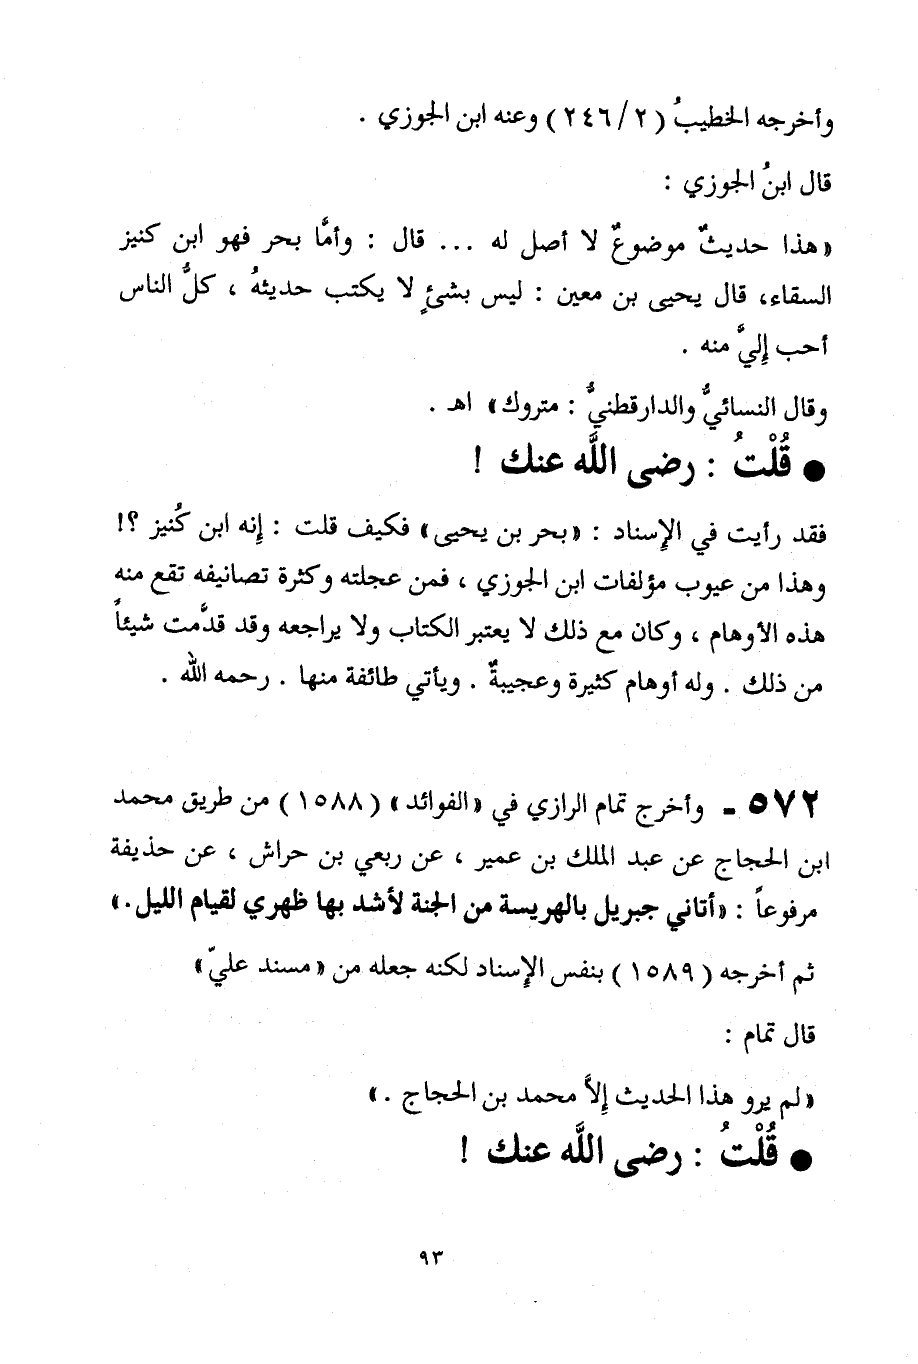 وأخرجه الخطيبُ (٢٤٦/٢) وعنه ابن الجوزي .
قال ابنُ الجوزي :
«هذا حديثٌ موضوعٌ لا أصل له ... قال : وأمَّا بحر فهو ابن كنيز
السقاء، قال يحيى بن معين : ليس بشئٍ لا يكتب حديثهُ ، كلُّ الناس
أحب إليَّ منه .
وقال النسائيُّ والدارقطنيُّ : متروك» اهـ .
● قُلْتُ : رضى اللَّه عنك !
فقد رأيت في الإسناد : «بحر بن يحيى» فكيف قلت : إنه ابن كُنيز ؟!
وهذا من عيوب مؤلفات ابن الجوزي ، فمن عجلته وكثرة تصانيفه تقع منه
هذه الأوهام ، وكان مع ذلك لا يعتبر الكتاب ولا يراجعه وقد قدَّمت شيئاً
من ذلك . وله أوهام كثيرة وعجيبةٌ . ويأتي طائفة منها . رحمه الله .
٥٧٢ ـ وأخرج تمام الرازي في «الفوائد» (١٥٨٨) من طريق محمد
ابن الحجاج عن عبد الملك بن عمير ، عن ربعي بن حراش ، عن حذيفة
مرفوعاً : «أتاني جبريل بالهريسة من الجنة لأشد بها ظهري لقيام الليل.»
ثم أخرجه (١٥٨٩) بنفس الإسناد لكنه جعله من «مسند عليّ»
قال تمام :
«لم يرو هذا الحديث إلاَّ محمد بن الحجاج .»
● قُلْتُ : رضى اللَّه عنك !
٩٣